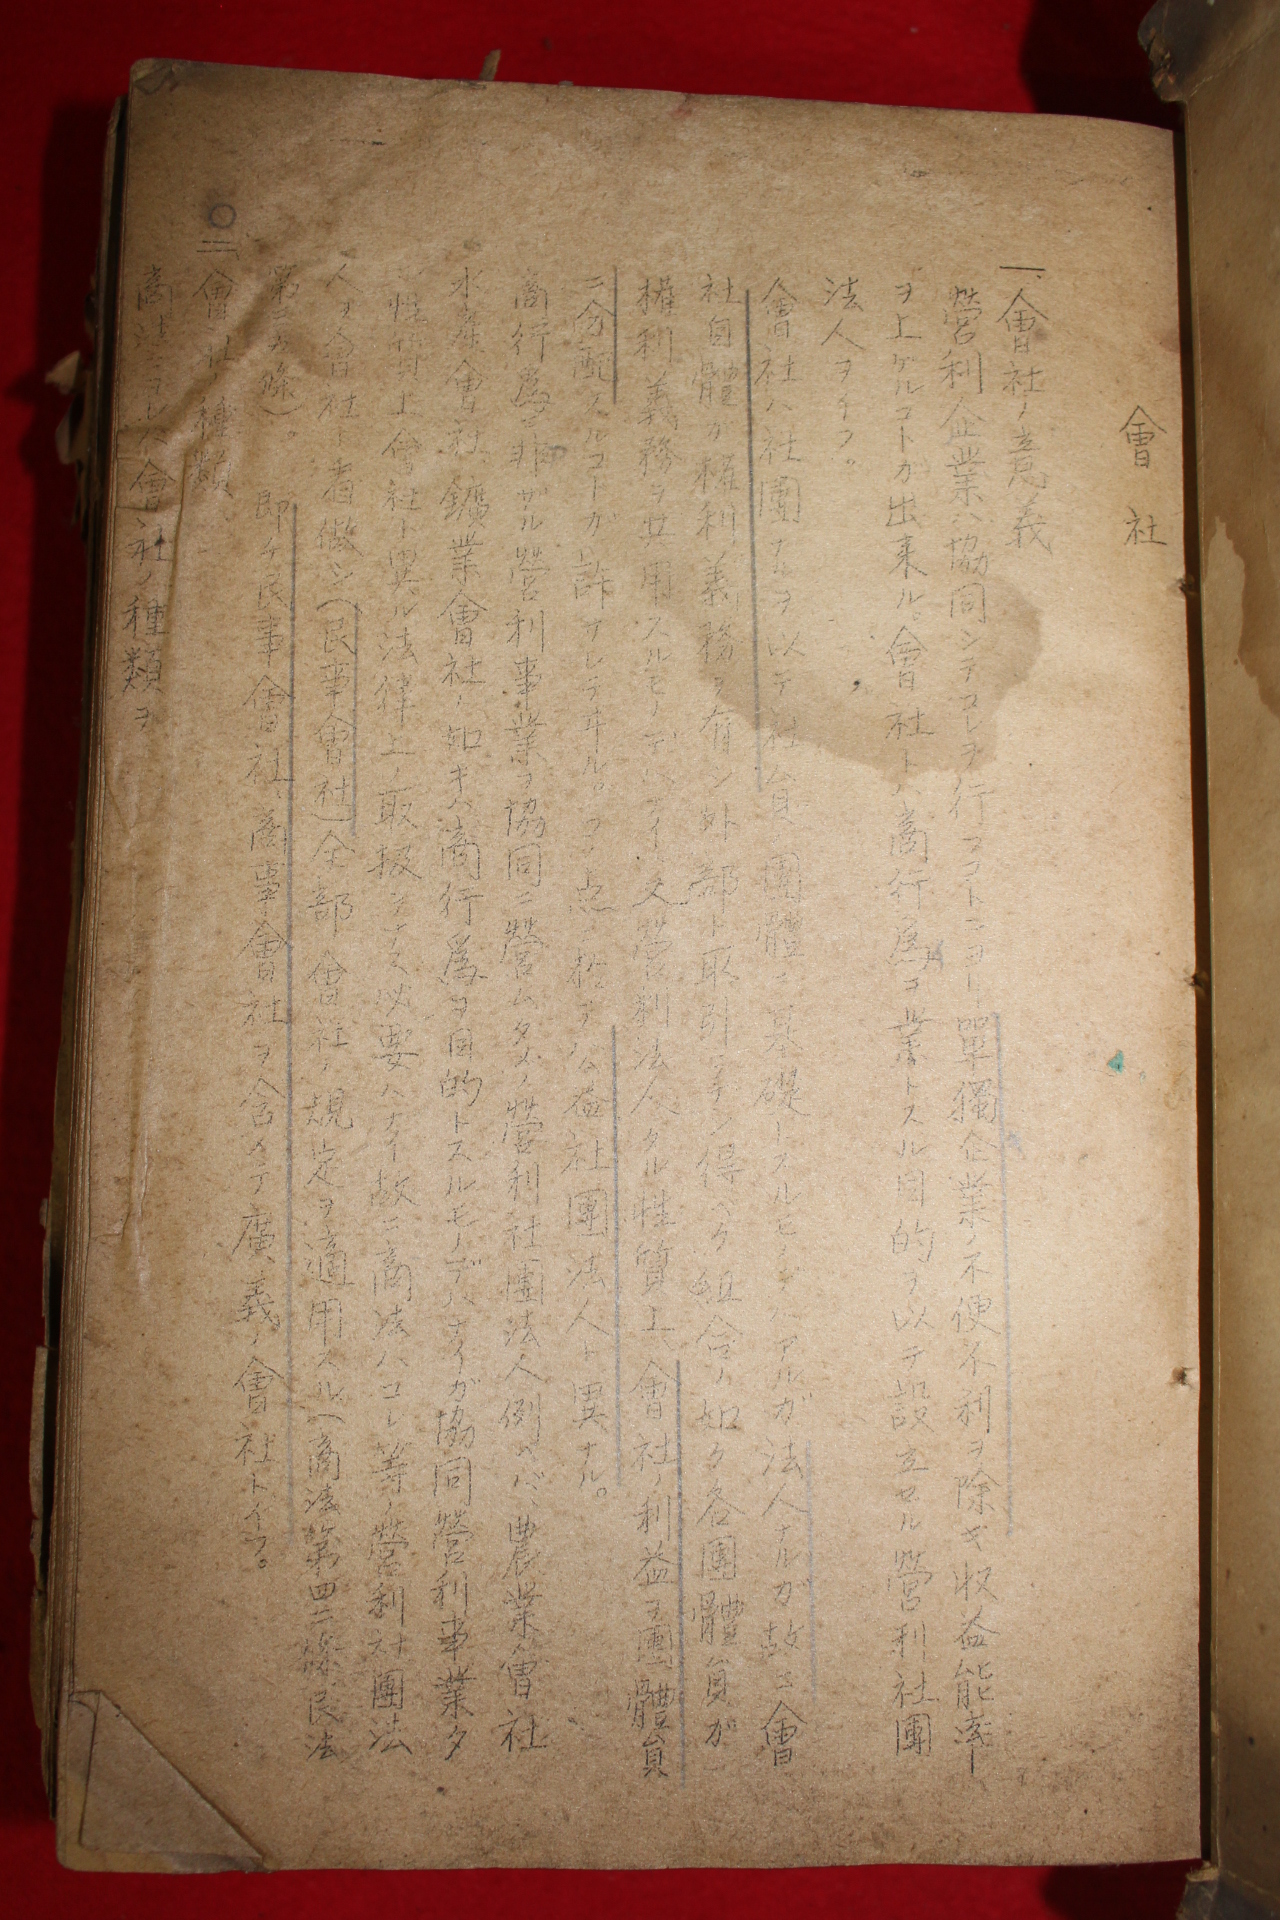 會社
一、會社ノ意義
營利企業ハ協同シテコレヲ行フコトニヨリ單獨企業ノ不便不利ヲ除キ收益能率
ヲ上ゲルコトガ出來ル。會社トハ商行爲ヲ業トスル目的ヲ以テ設立セル營利社團
法人ヲイフ。
會社ハ社團ナルヲ以テ社員ノ團體ヲ基礎トスルモノデハアルガ法人ナルガ故ニ會
社自體ガ權利義務ヲ有シ外部ト取引ヲナシ得ベク組合ノ如ク各團體員ガ
權利義務ヲ共用スルモノデハナイ又營利法人タル性質上、會社ノ利益ヲ團體員
ニ分配スルコトガ許サレテヰル。コノ点ニ於テ公益社團法人ト異ナル。
商行爲ニ非ザル營利事業ヲ協同ニ營ムタメノ營利社團法人例ヘバ、農業會社
水産會社、鑛業會社ノ如キハ商行爲ヲ目的トスルモノデハナイガ協同營利事業タ
性質上會社ト異ル法律上ノ取扱ヲナス必要ハナイ故ニ商法ハコレ等ノ營利社團法
人ヲ會社ト看做シ(民事會社)全部會社ノ規定ヲ適用スル(商法第四二條民法
第三五條)。
即ケ民事會社、商事會社ヲ含メテ廣義ノ會社トイフ。
○二、會社ノ種類
商法ニヨレバ會社ノ種類ヲ